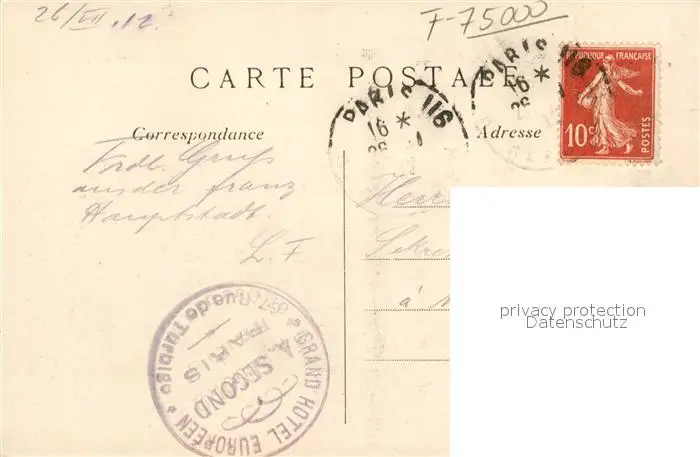 26/VII .12.
F-75000
CARTE POSTALE
PARIS 116
16 *
PARIS 116
16 *
RÉPUBLIQUE FRANÇAISE
10 c
POSTES
Correspondance
Adresse
Frdl. Gruß
aus der franz
Hauptstadt.
L. F.
Herrn
Sekre
à
privacy protection
Datenschutz
* GRAND HOTEL EUROPÉEN *
Rue de Turbigo
A. SECOND
PARIS